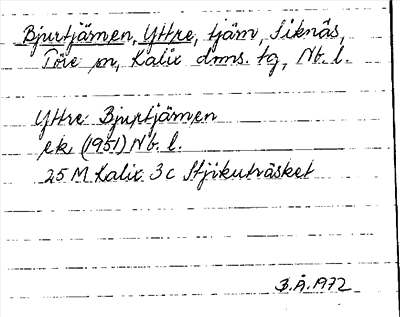 Bjurtjämen, Yttre, tjäm, Siknäs,
Töre sn, Kalix dms. tg, Nb. l.
Yttre Bjurtjämen
ek. (1951) Nb. l.
25 M Kalix 3c Stjikuträsket
B.Å. 1972